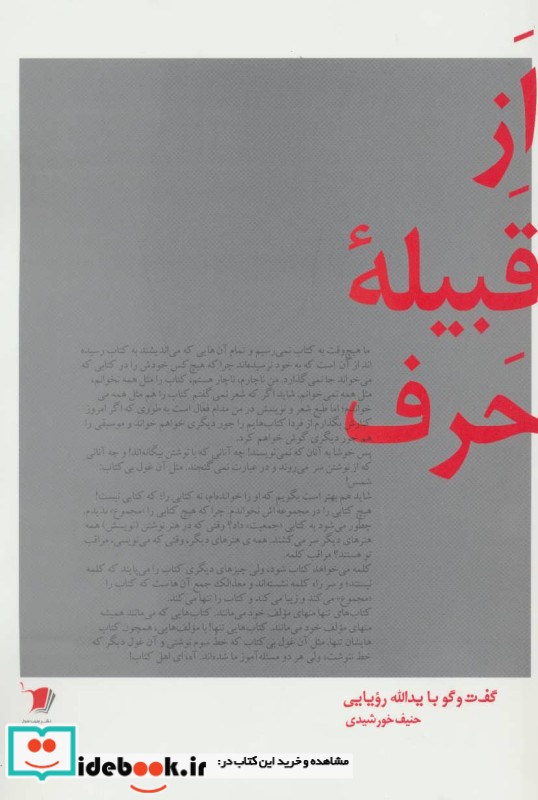 اَزِ
قبیلهٔ
حَرف
ما هیچ‌وقت به کتاب نمی‌رسیم و تمام آن‌هایی که می‌اندیشند به کتاب رسیده
اند از آن است که به خود نرسیده‌اند چرا که هیچ کس خودش را در کتابی که
می‌خواند جا نمی‌گذارد. من ناچارم، ناچار هستم، کتاب را مثل همه نخوانم،
مثل همه نمی‌خوانم. شاید اگر که شعر نمی‌گفتم کتاب را هم مثل همه می
خواندم؛ اما طبع شعر و نویسش در من مدام فعال است به طوری که اگر امروز
بگذارم از فردا کتاب‌هایم را جور دیگری خواهم خواند و موسیقی را
هم جور دیگری گوش خواهم کرد.
پس خوشا به آنان که نمی‌نویسند! چه آنانی که با نوشتن بیگانه‌اند! و چه آنانی
که از نوشتن سر می‌روند و در عبارت نمی‌گنجند. مثل آن غول بی کتاب:
شمس!
شاید هم بهتر است بگویم که او را خوانده‌ام، نه کتابی را! که کتابی نیست!
هیچ کتابی را در مجموعه اش نخواندم. چرا که هیچ کتابی را «مجموع» ندیدم.
چطور می‌شود به کتابی «جمعیت» داد؟ وقتی که در هنر نوشتن (نویسش) همه
هنرهای دیگر سر می‌کشند. همه ی هنرهای دیگر، وقتی که می‌نویسی، مراقب
تو هستند؟ مراقب کلمه.
کلمه می‌خواهد کتاب شود، ولی چیزهای دیگری کتاب را می‌پایند که کلمه
نیستند؛ و سر راه کلمه نشسته‌اند و معذالک جمع آن هاست که کتاب را
«مجموع» می‌کند و زیبا می‌کند و کتاب را تنها می‌کند.
کتاب‌های تنها منهای مؤلف خود می‌مانند. کتاب‌هایی که می‌مانند همیشه
منهای مؤلف خود می‌مانند. کتاب‌هایی تنها! با مؤلف‌هایی، همچون کتاب
هایشان تنها، مثل آن غول بی‌کتاب که خط سوم نوشتی و آن غول دیگر که
خط ننوشت، ولی هر دو مسئله آموز ما شده‌اند. آه، ای اهل کتاب!
گفت‌وگو با یدالله رؤیایی
حنیف خورشیدی
مشاهده و خرید این کتاب در:
idebook.ir